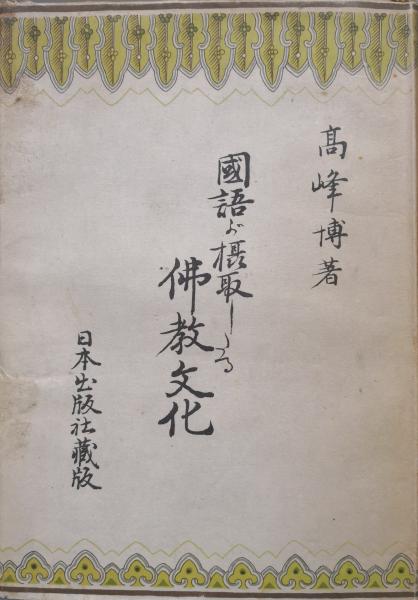 高峰博著
國語が摂取したる
佛教文化
日本出版社藏版